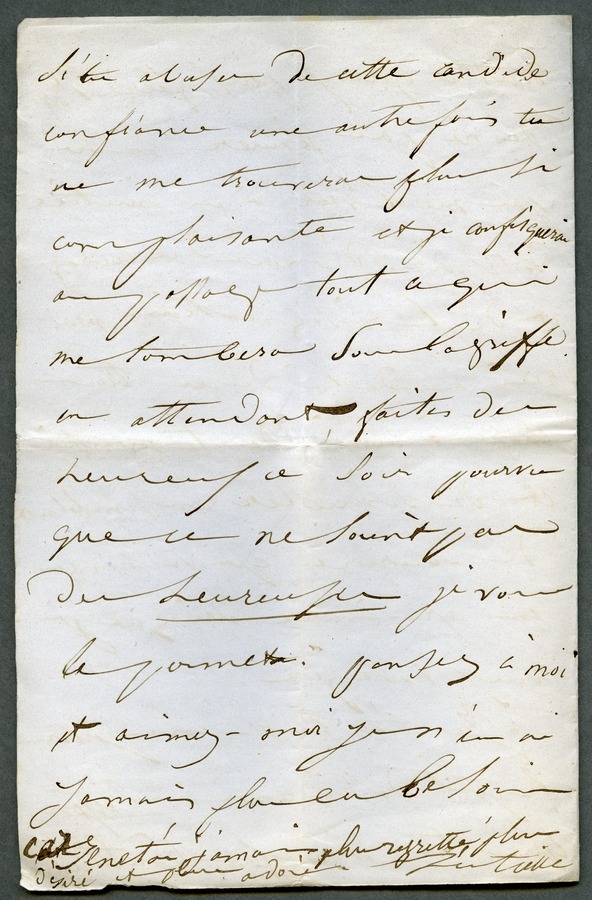 si tu abuses de cette candide
confiance une autre fois tu
ne me trouveras plus si
complaisante et je confisquerai
au passage tout ce qui
me tombera sous la griffe.
en attendant, faites des
heureux ce soir pourvu
que ce ne soient pas
des heureuses je vous
le permets. pensez à moi
et aimez-moi je n'en ai
jamais plus eu besoin
car je ne t'ai jamais plus regretté plus
désiré et plus adoré